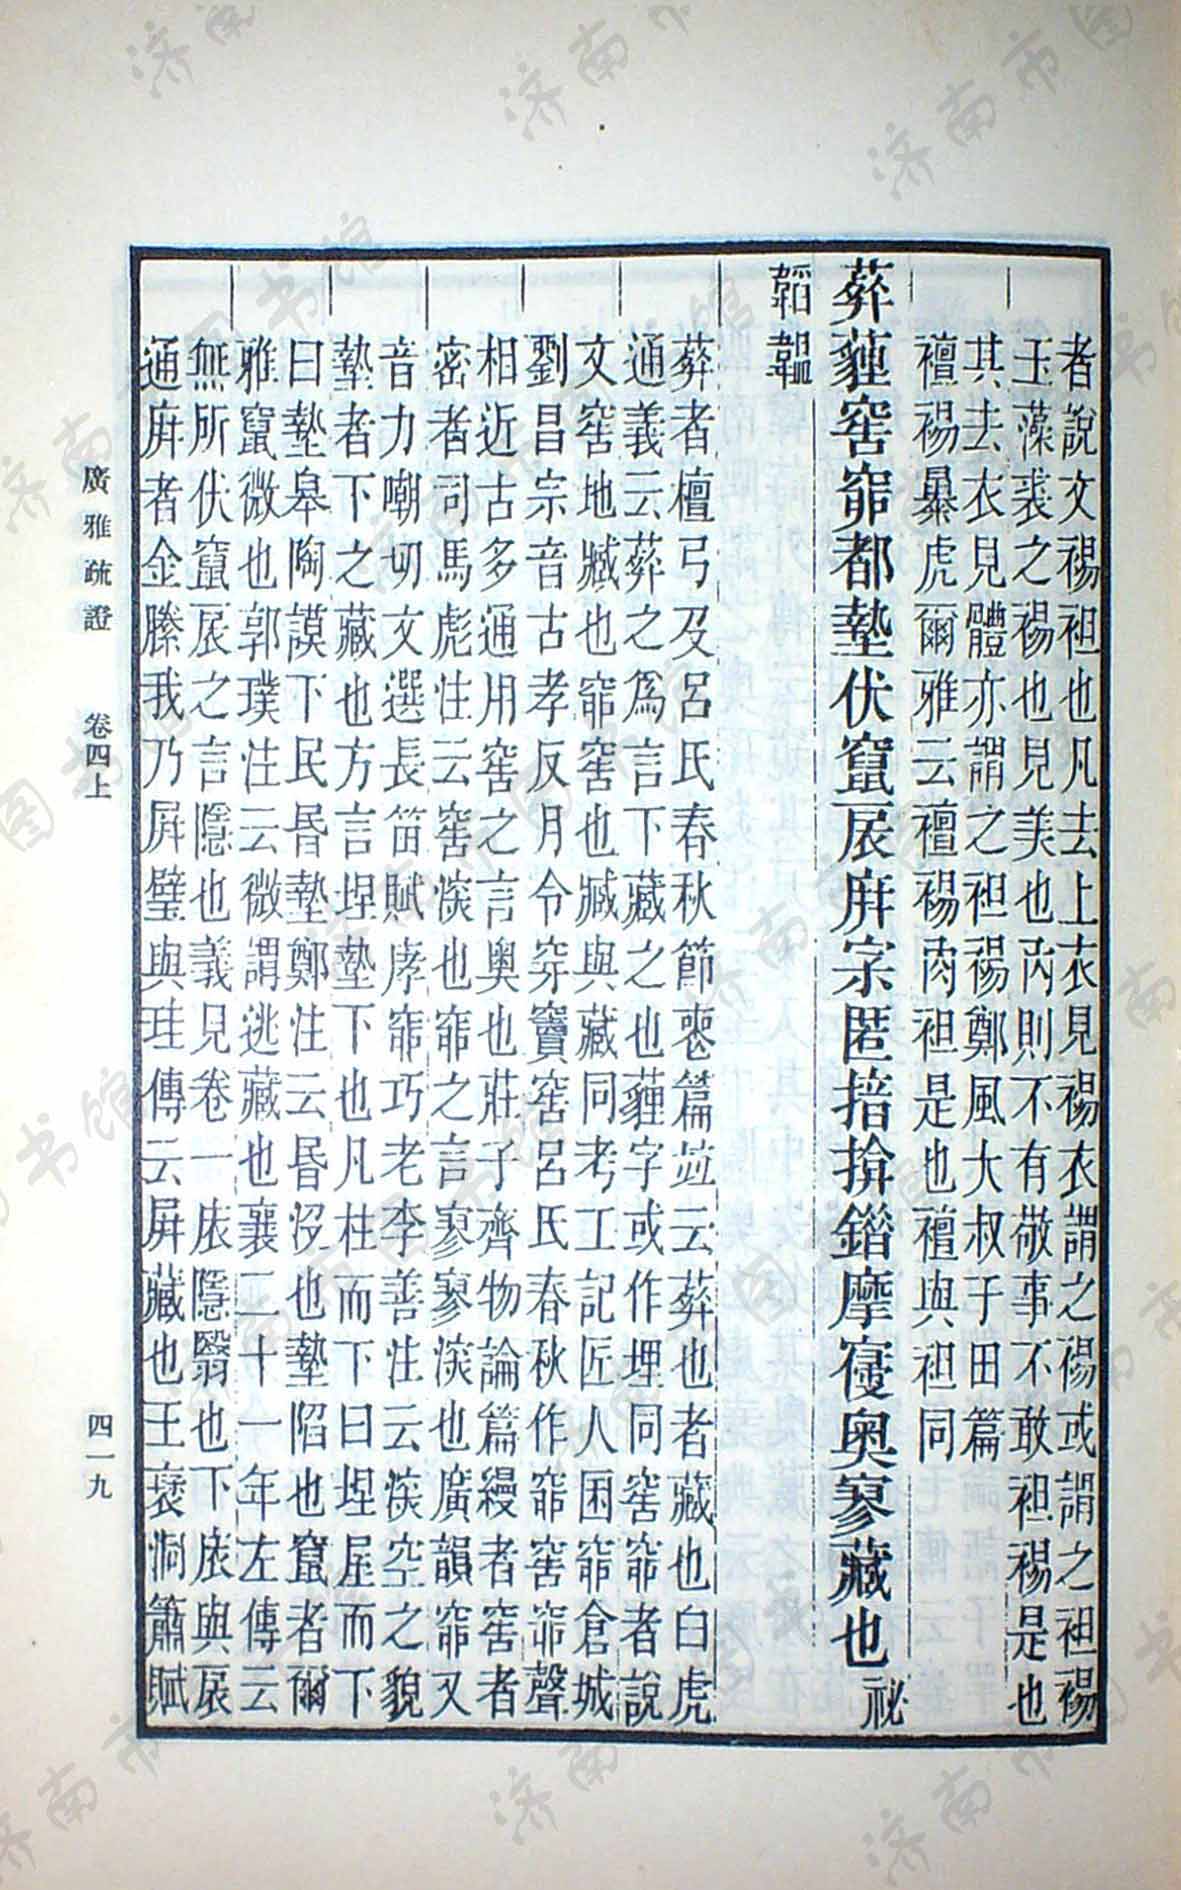 者說文裼袒也凡去上衣見裼衣謂之裼或謂之袒裼
玉藻裘之裼也見美也內則不有敬事不敢袒裼是也
其去衣見體亦謂之袒裼鄭風大叔于田篇
襢裼暴虎爾雅云襢裼肉袒是也襢與袒同
葬薶窖窌都墊伏竄㞡庰寀匿揞揜錔摩𡪢奧寥藏也祕
韜韞
葬者檀弓及呂氏春秋節喪篇竝云葬也者藏也白虎
通義云葬之爲言下藏之也薶字或作埋同窖窌者說
文窖地臧也窌窖也臧與藏同考工記匠人囷窌倉城
劉昌宗音古孝反月令穿竇窖呂氏春秋作窌窖窌聲
相近古多通用窖之言奧也莊子齊物論篇縵者窖者
密者司馬彪注云窖深也窌之言寥寥深也廣韻窌又
音力嘲切文選長笛賦庨窌巧老李善注云深空之貌
墊者下之藏也方言埕墊下也凡柱而下曰埕屋而下
曰墊皋陶謨下民昬墊鄭注云昬沒也墊陷也竄者爾
雅竄微也郭璞注云微謂逃藏也襄二十一年左傳云
無所伏竄㞡之言隱也義見卷一扆隱翳也下扆與㞡
通庰者金縢我乃屛璧與珪傳云屛藏也王襃洞簫賦
廣雅疏證
卷四上
四一九